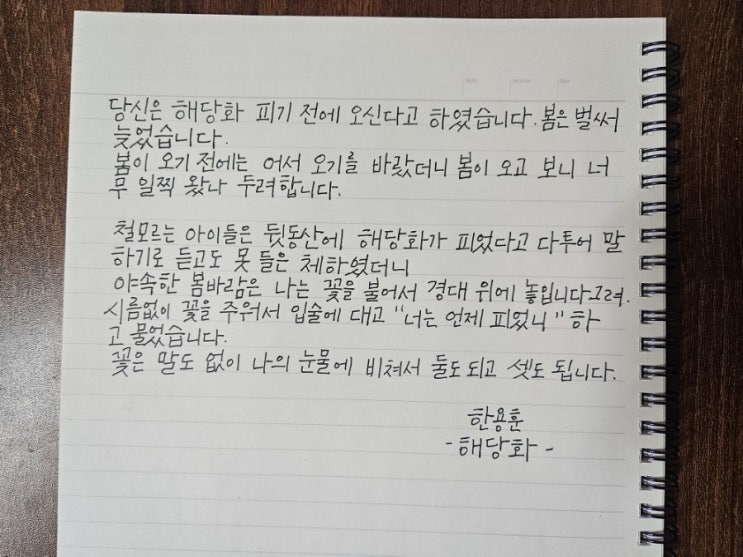 당신은 해당화 피기 전에 오신다고 하였습니다. 봄은 벌써
늦었습니다.
봄이 오기 전에는 어서 오기를 바랐더니 봄이 오고 보니 너
무 일찍 왔나 두려합니다.
철모르는 아이들은 뒷동산에 해당화가 피었다고 다투어 말
하기로 듣고도 못 들은 체하였더니
야속한 봄바람은 나는 꽃을 불어서 경대 위에 놓입니다그려.
시름없이 꽃을 주워서 입술에 대고 "너는 언제 피었니" 하
고 물었습니다.
꽃은 말도 없이 나의 눈물에 비쳐서 둘도 되고 셋도 됩니다.
한용훈
- 해당화 -